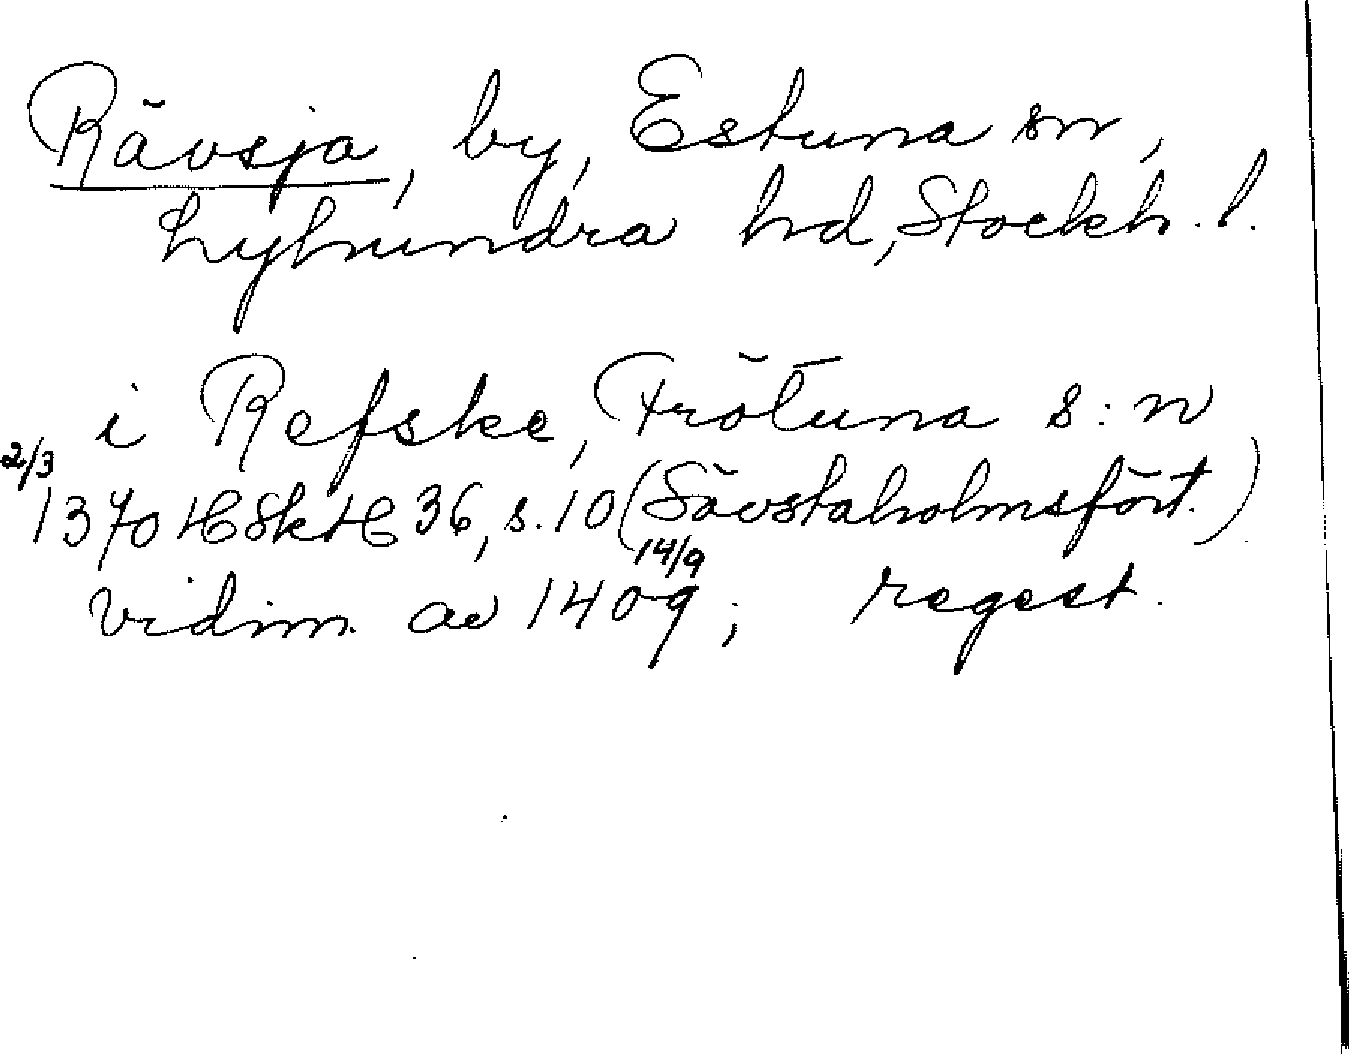 Rävsja, by, Estuna sn,
Lyhundra hd, Stockh. l.
i Refske, Frötuna s:n
2/3 1370 HSkH 36, s. 10 (Sävstaholmsfört.)
vidim. av 14/9 1409; regest.